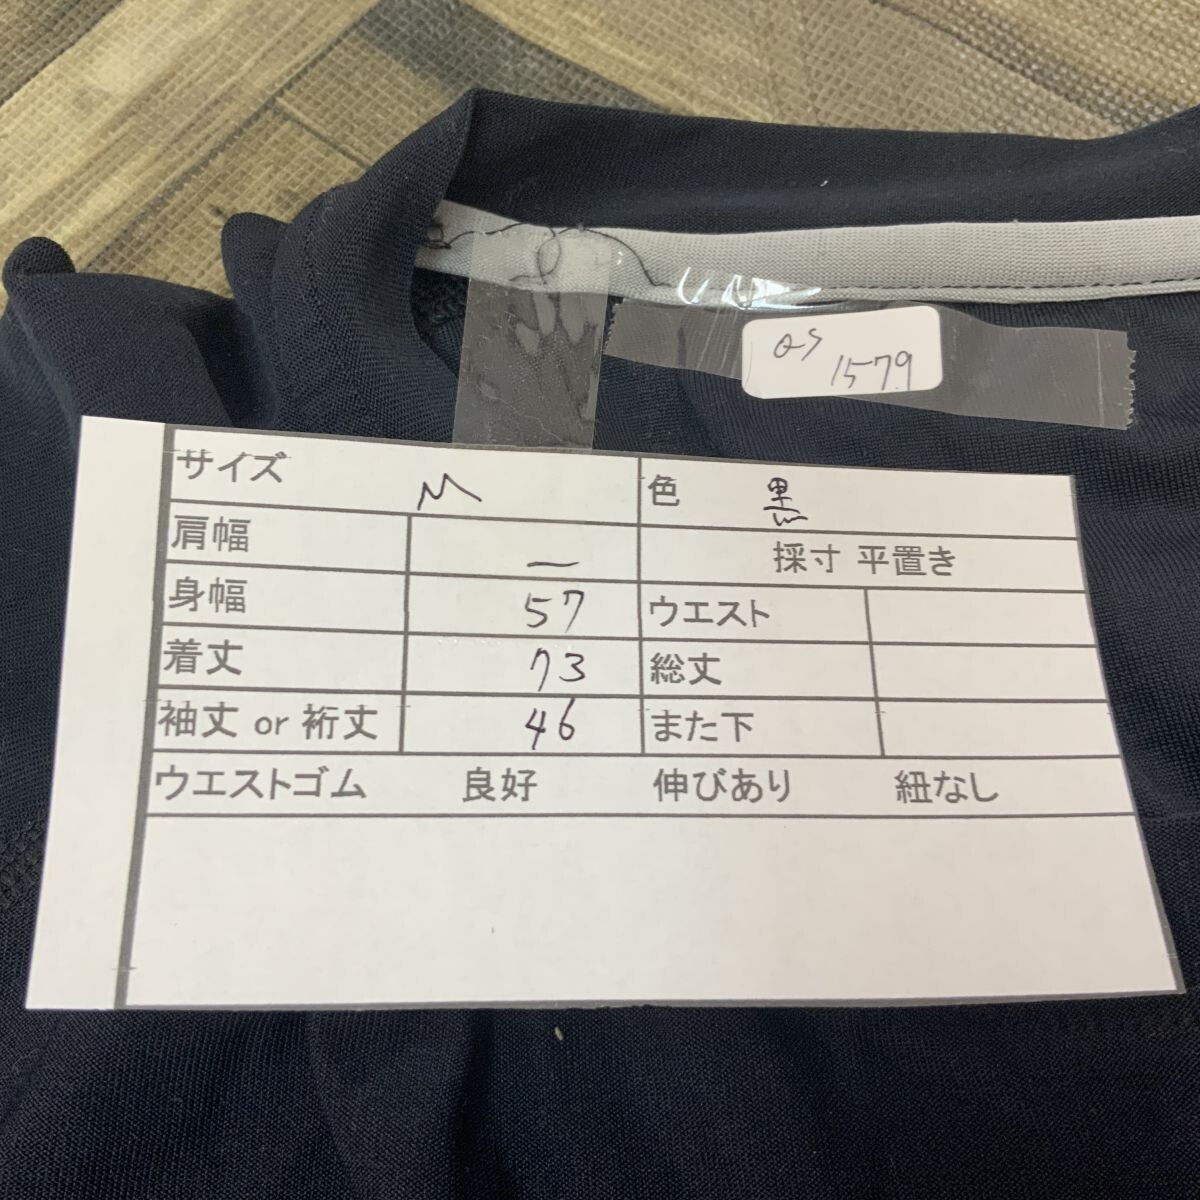 QS
1579
サイズ M 色 黒
肩幅 ー 採寸 平置き
身幅 57 ウエスト
着丈 73 総丈
袖丈 or 裄丈 46 また下
ウエストゴム 良好 伸びあり 紐なし